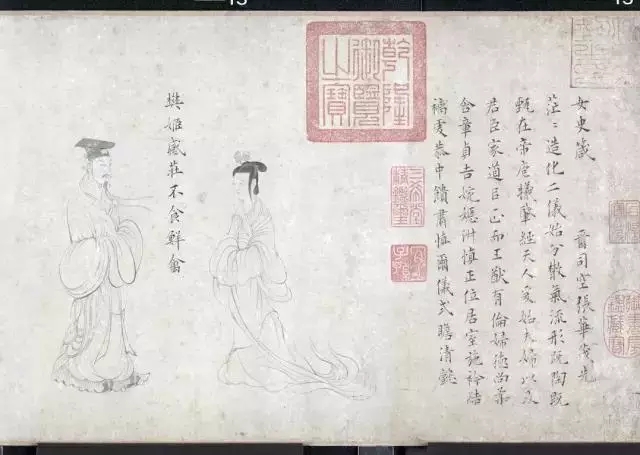 女史箴 晉司空張華茂先
茫〻造化二儀始分散氣流形既陶既
甄在帝庖犧肇經天人爰始夫婦以及
君臣家道以正而王猷有倫婦德尚柔
含章貞吉婉嫕淑慎正位居室施衿結
褵虔恭中饋肅慎爾儀式瞻清懿
乾隆御覽之寶
三希堂精鑑璽
宜子孫
樊姬感莊不食鮮禽